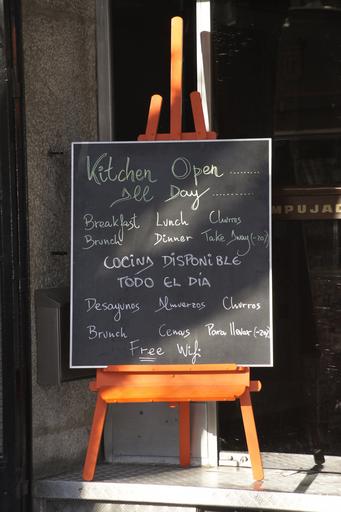 Kitchen Open ........
All Day ...........
Breakfast Lunch Churros
Brunch Dinner Take Away (-20)
COCINA DISPONIBLE
TODO EL DÍA
Desayunos Almuerzos Churros
Brunch Cenas Para llevar (-20)
Free Wifi
MPUJAD